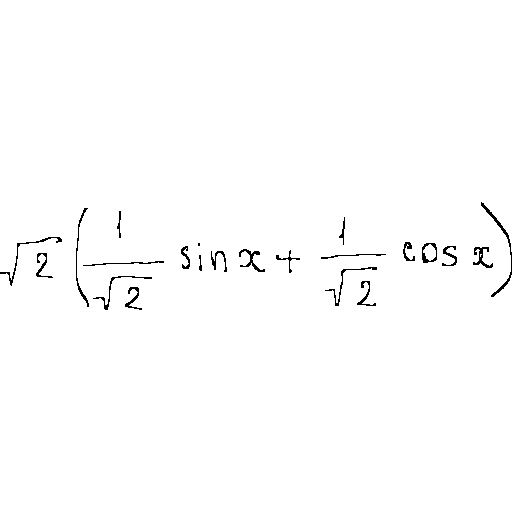 \sqrt{2} \left( \frac{1}{\sqrt{2}} \sin x + \frac{1}{\sqrt{2}} \cos x \right)